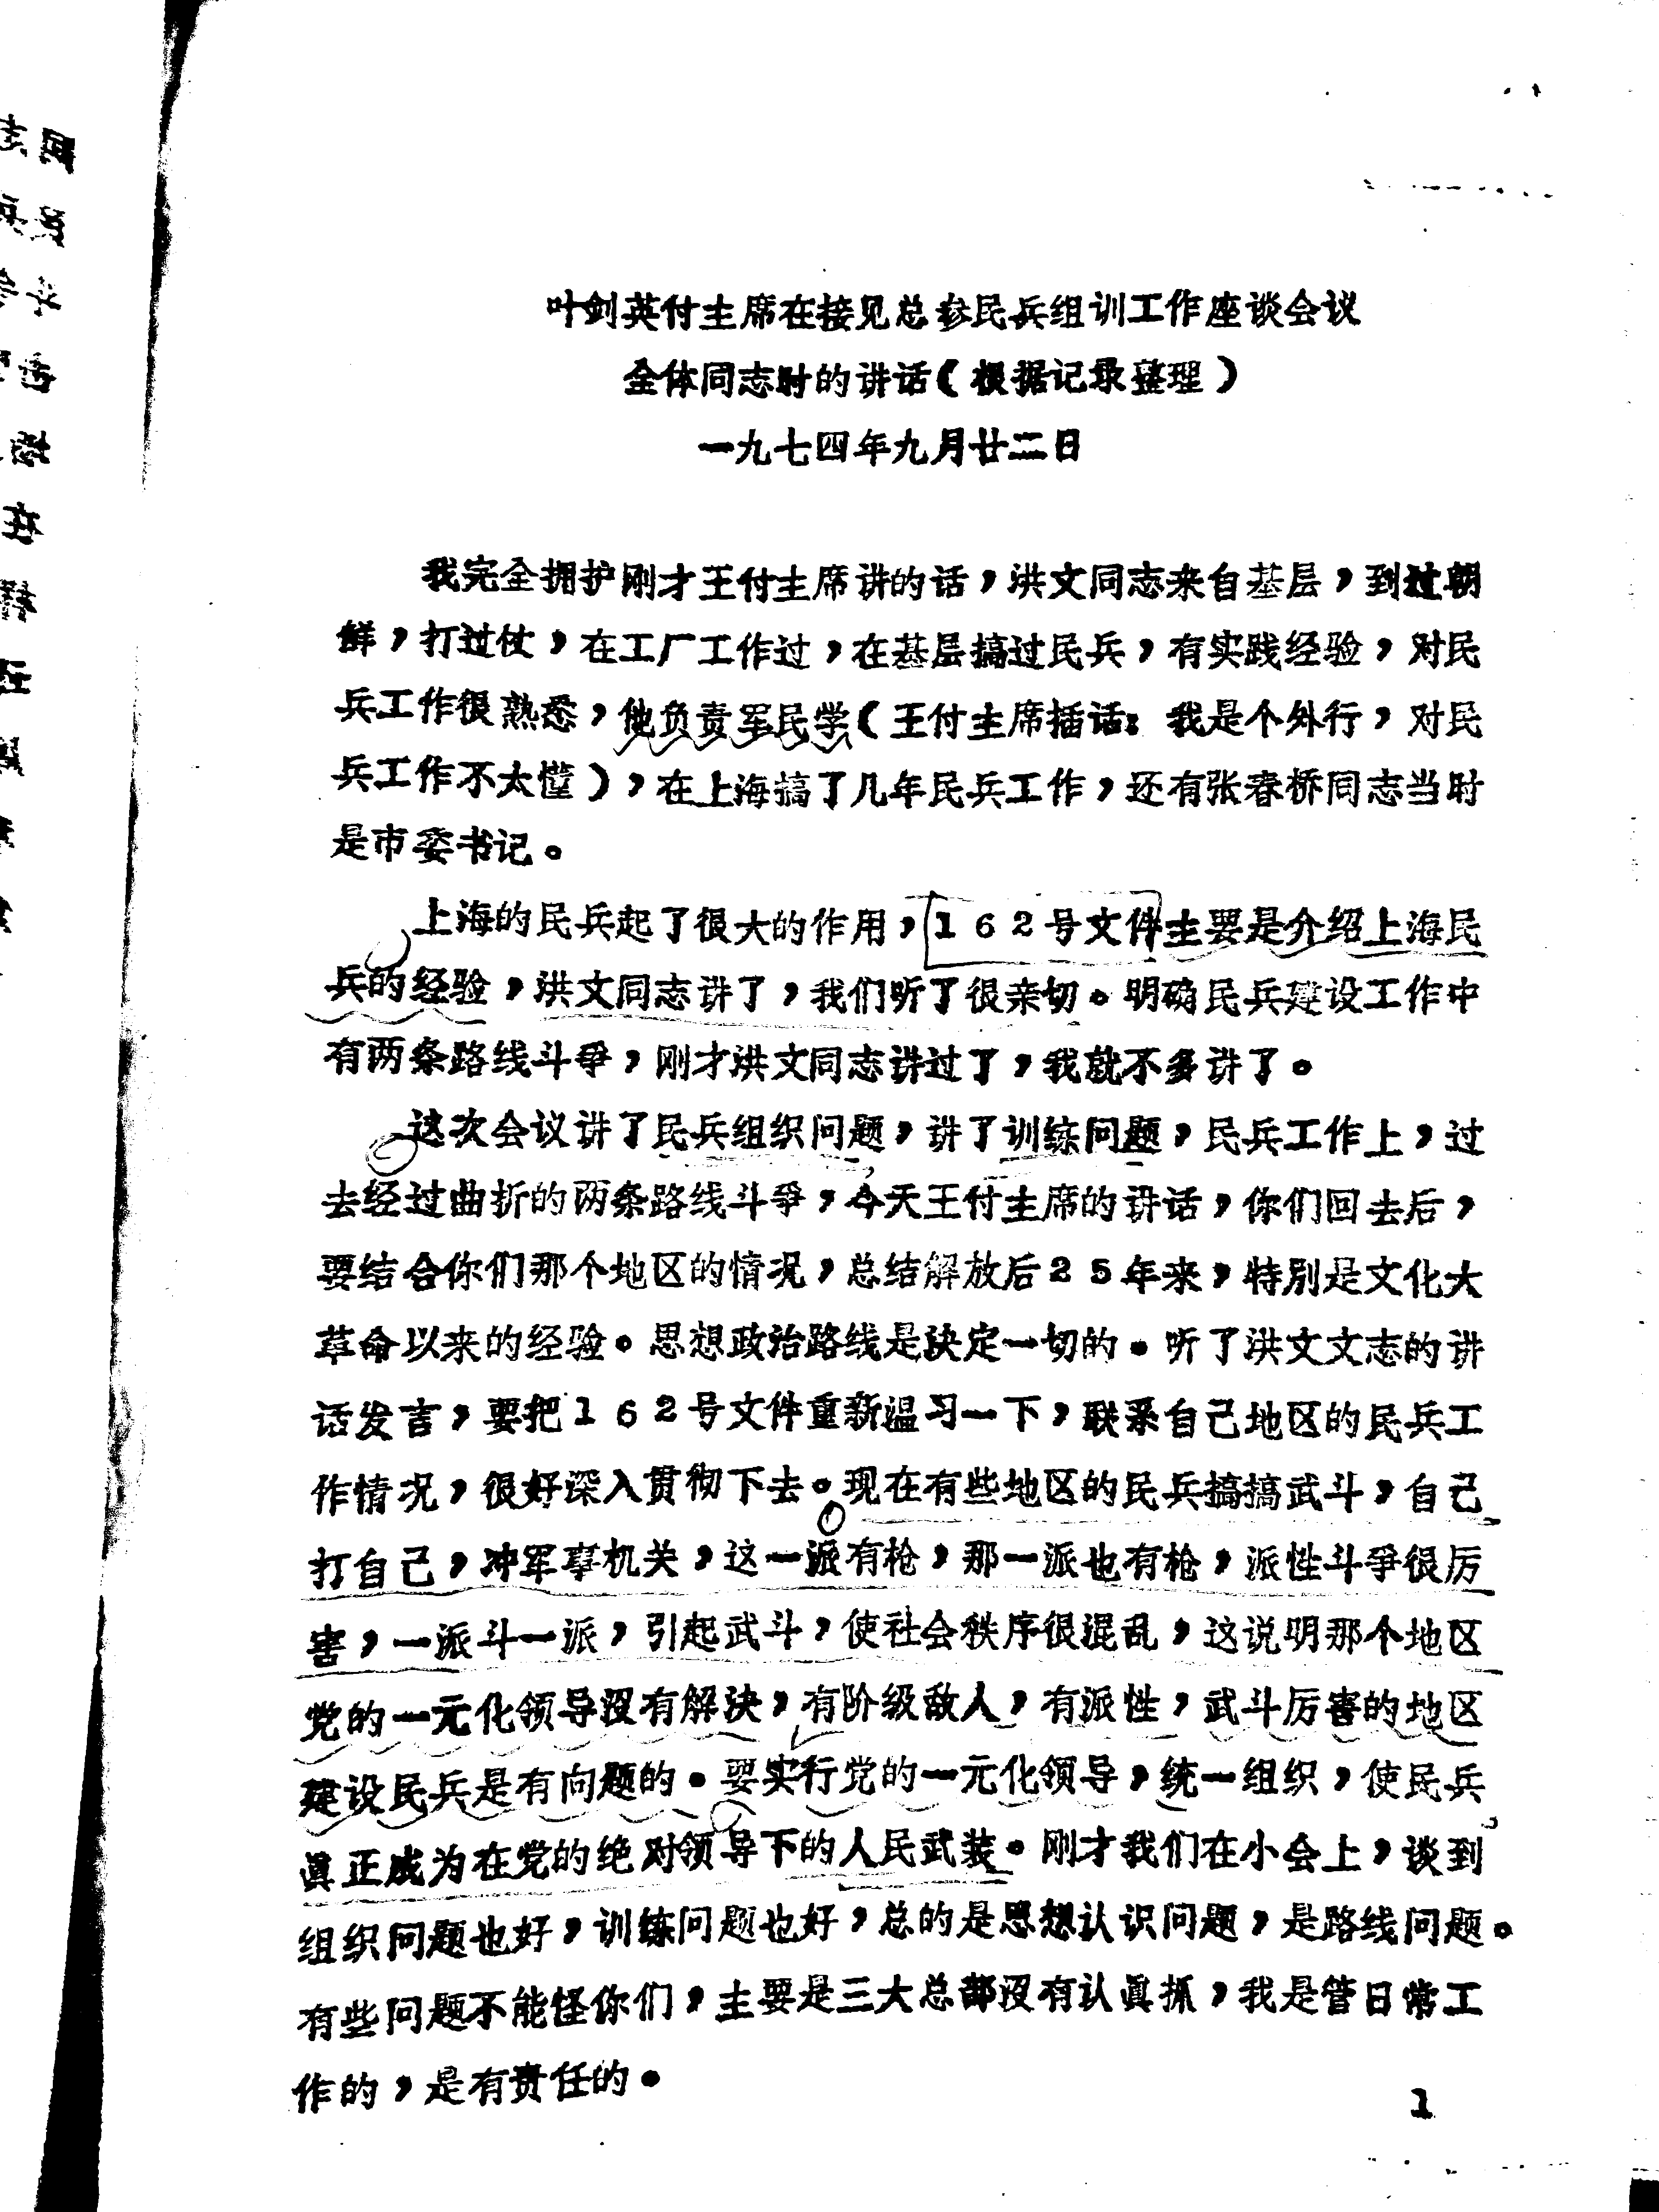 叶剑英付主席在接见总参民兵组训工作座谈会议
全体同志时的讲话(根据记录整理)
一九七四年九月廿二日
我完全拥护刚才王付主席讲的话，洪文同志来自基层，到过朝
鲜，打过仗，在工厂工作过，在基层搞过民兵，有实践经验，对民
兵工作很熟悉，他负责军民学(王付主席插话：我是个外行，对民
兵工作不太懂)，在上海搞了几年民兵工作，还有张春桥同志当时
是市委书记。
上海的民兵起了很大的作用，162号文件主要是介绍上海民
兵的经验，洪文同志讲了，我们听了很亲切。明确民兵建设工作中
有两条路线斗争，刚才洪文同志讲过了，我就不多讲了。
这次会议讲了民兵组织问题，讲了训练问题，民兵工作上，过
去经过曲折的两条路线斗争，今天王付主席的讲话，你们回去后，
要结合你们那个地区的情况，总结解放后25年来，特别是文化大
革命以来的经验。思想政治路线是决定一切的。听了洪文文志的讲
话发言，要把162号文件重新温习一下，联系自己地区的民兵工
作情况，很好深入贯彻下去。现在有些地区的民兵搞搞武斗，自己
打自己，冲军事机关，这一派有枪，那一派也有枪，派性斗争很厉
害，一派斗一派，引起武斗，使社会秩序很混乱，这说明那个地区
党的一元化领导没有解决，有阶级敌人，有派性，武斗厉害的地区
建设民兵是有问题的。要实行党的一元化领导，统一组织，使民兵
真正成为在党的绝对领导下的人民武装。刚才我们在小会上，谈到
组织问题也好，训练问题也好，总的是思想认识问题，是路线问题。
有些问题不能怪你们，主要是三大总部没有认真抓，我是管日常工
作的，是有责任的。
1